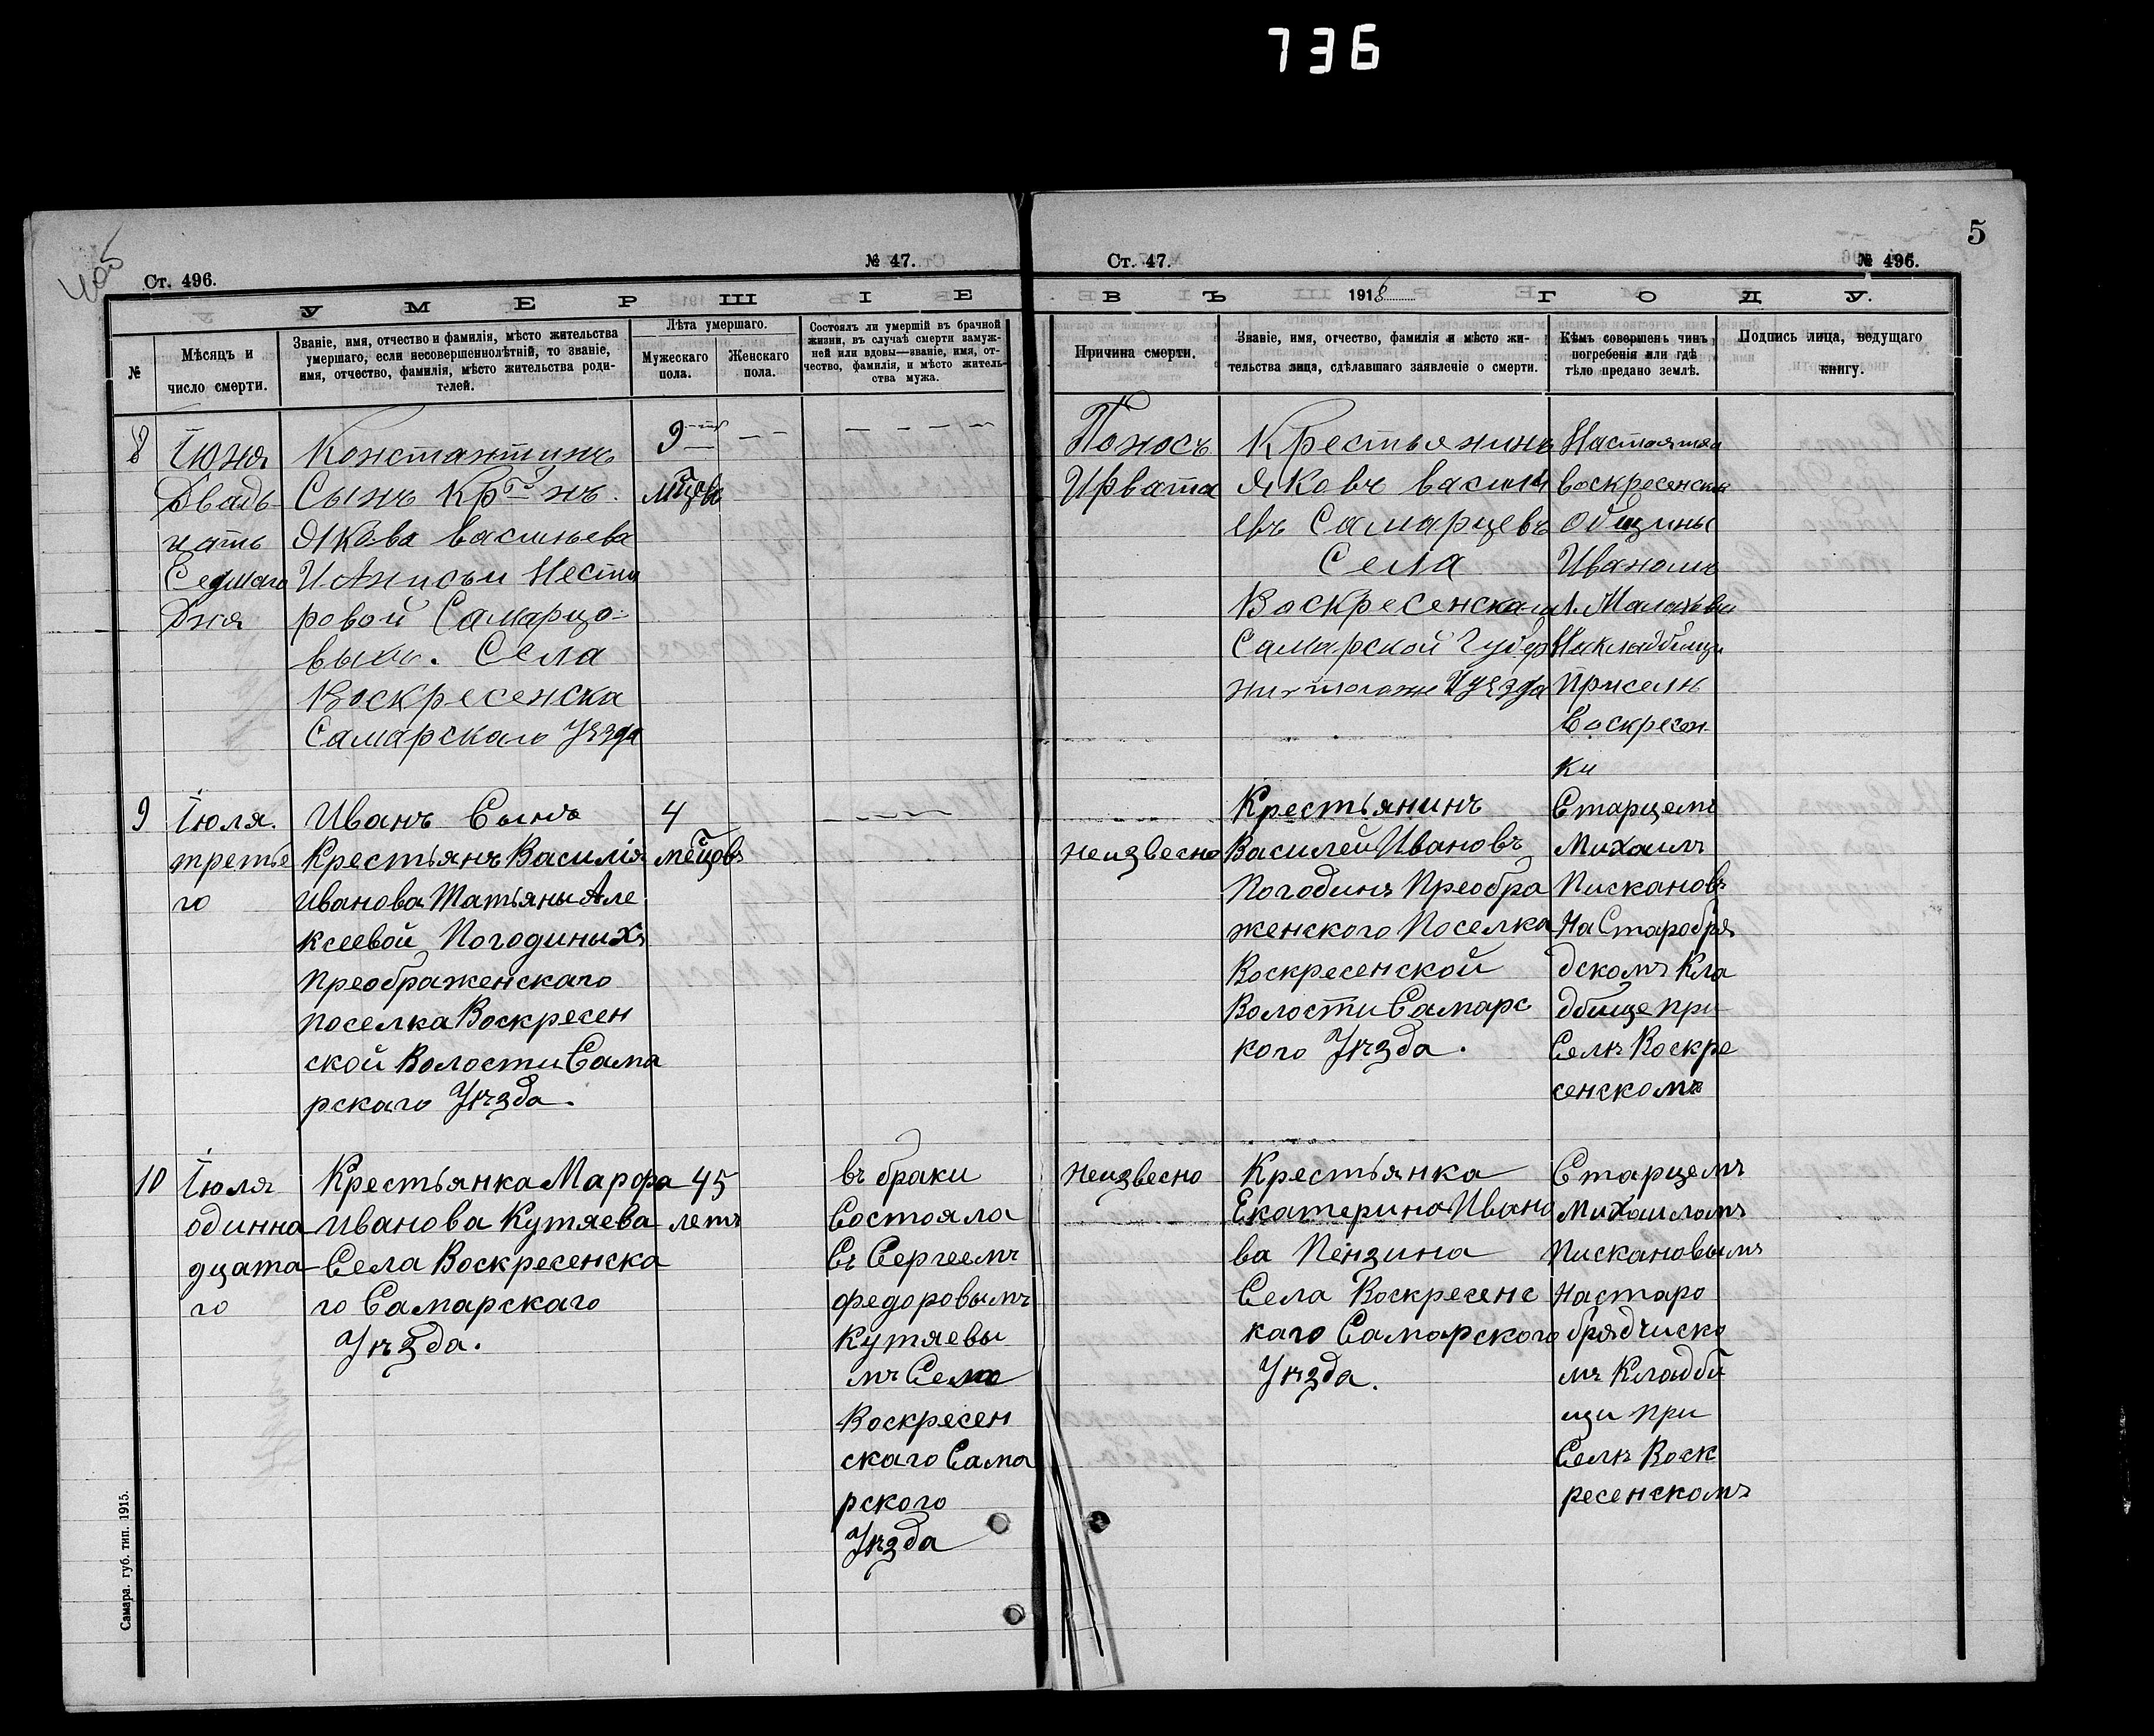 736
5
Ст. 496.
№ 47.
УМЕРШІЕ
№
Мѣсяцъ и число смерти.
Званіе, имя, отчество и фамилія, мѣсто жительства
умершаго, если несовершеннолѣтній, то званіе,
имя, отчество, фамилія, мѣсто жительства роди-
телей.
Лѣта умершаго.
Мужескаго
пола.
Женскаго
пола.
Состоялъ ли умершій въ брачной
жизни, въ случаѣ смерти замуж-
ней или вдовы—званіе, имя, от-
чество, фамилія, и мѣсто житель-
ства мужа.
Ст. 47.
№ 496.
ВЪ 1918 ГОДУ.
Причина смерти.
Званіе, имя, отчество, фамилія и мѣсто жи-
тельства лица, сдѣлавшаго заявленіе о смерти.
Кѣмъ совершенъ чинъ
погребенія или гдѣ
тѣло предано землѣ.
Подпись лица, ведущаго
книгу.
8
Іюня
Двадь
цать
Седмаго
Дня
Константинъ
Сынъ Кр нъ.
Якова васильева
И Анисьи Несто
ровой Самарцо-
выхъ. Села
Воскресенска
Самарскаго Уѣзда
9
мцевъ
Поносъ
Ирвата
Крестьянинъ
Яковъ василь
евъ Самарцевъ
Села
Воскресенскаго
Самарской Губер
нии тогоже Уѣзда
Настоятел
воскресенской
Общины
Иваномъ
Малаховы
Накладбищи
Приселѣ
Воскресен-
ки
9
Іюля.
третье
го
Иванъ Сынъ
Крестьянъ Василія
Иванова Татьяны Але
ксеевой Погодиныхъ
Преображенскаго
поселка Воскресен
ской Волости Сама
рскаго Уѣзда.
4
мецовъ
неизвесно
Крестьянинъ
Василей Ивановъ
Погодинъ Преобра
женского Поселка
Воскресенской
Волости Самарс
кого Уѣзда.
Старцемъ
Михаилъ
Пискановъ
На Старобря
дскомъ Кла
дбище при
Селѣ Воскре
сенскомъ
10
Іюля
одинна
дцата
го
Крестьянка Марфа
Иванова Кутяева
Села Воскресенска
го Самарскаго
Уѣзда.
45
летъ
въ браки
Состояла
Съ Сергеемъ
федоровымъ
Кутяевы
мъ Села
Воскресен
скаго Сама
рского
Уѣзда
Неизвесно
Крестьянка
Екатерина Ивано
ва Пензина
Села Воскресенс
каго Самарского
Уѣзда.
Старцемъ
Михаиломъ
Пискановымъ
Настаро
брядчиско
мъ Кладби
щи при
Селѣ Воск
ресенскомъ
Самара. губ. тип. 1915.